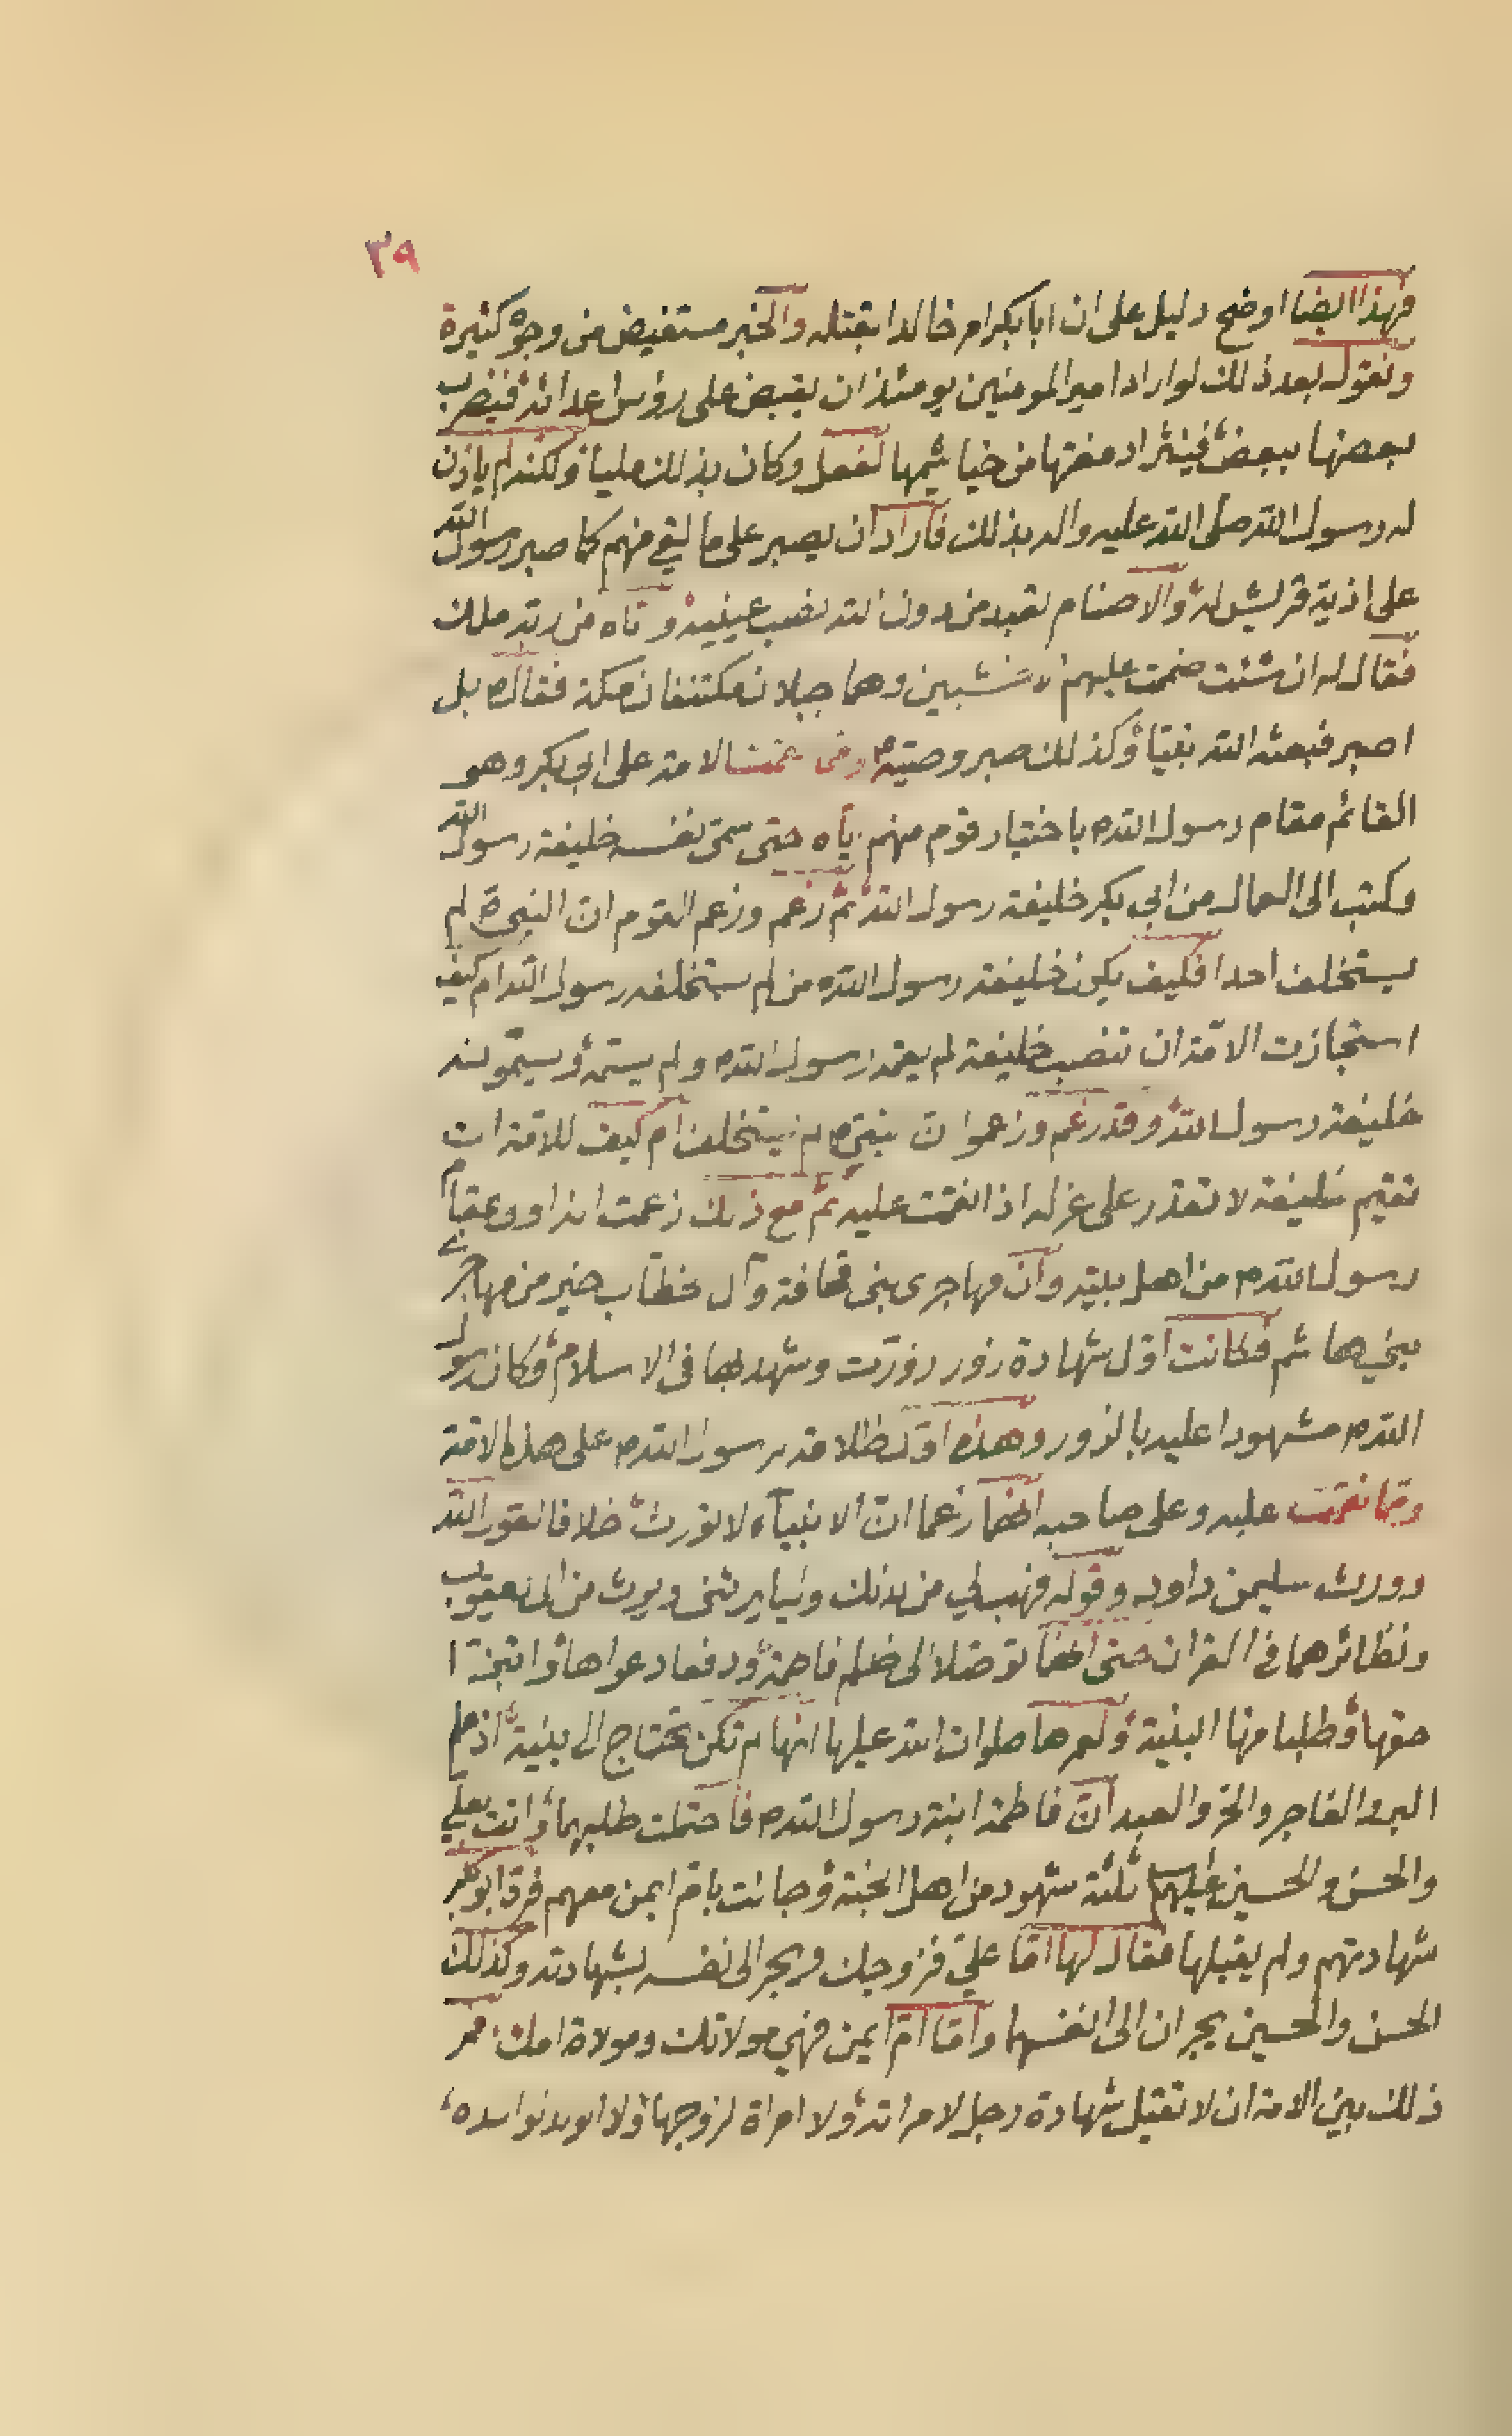 ٣٩
فهذا ايضا اوضح دليل على ان ابا بكر امر خالدا بقتله والخبر مستفيض من وجوه كثيرة
ونقول بعد ذلك لو اراد امير المومنين يومئذ ان يقبض على رؤس اعدائه فيضرب
بعضها ببعض فينثر ادمغتها من خياشيمها لفعل وكان بذلك مليا ولكنه لم ياذن
له رسول الله صلى الله عليه واله بذلك فاراد ان يصبر على ما لقي منهم كما صبر رسول الله
على اذية قريش له والاصنام تعبد من دون الله نصب عينيه واتاه من ربه ملك
فقال له ان شئت ضممت عليهم الاخشبين وهما جبلان مكتنفان مكة فقال ص بل
اصبر فبعثه الله نبيا وكذلك صبر وصيه ومما نقمت الامة على ابي بكر وهو
القائم مقام رسول الله ص باختيار قوم منهم اياه حتى سمى نفسه خليفة رسول الله
وكتب الى العمال من ابي بكر خليفة رسول الله ثم زعم وزعم القوم ان النبي ص لم
يستخلف احدا فكيف يكون خليفة رسول الله ص من لم يستخلفه رسول الله ام كيف
استجازت الامة ان تنصب خليفة لم يقمه رسول الله ص ولم يسمه ويسمونه
خليفة رسول الله وقد زعم وزعموا ان نبيه ص لم يستخلف ام كيف للامة ان
تقيم خليفة لا تقدر على عزله اذا نقمت عليه ثم مع ذلك زعمت انه اولى بمقام
رسول الله ص من اهل بيته وان مهاجرى بنى قحافة وآل خطاب خير من مهاجرى
بني هاشم فكانت اول شهادة زور زورت وشهد بها فى الاسلام وكان رسول
الله ص مشهودا عليه بالزور وهذه اول ظلامة لرسول الله ص على هذه الامة
ومما نقمت عليه وعلى صاحبه انهما زعما ان الانبياء لا تورث خلافا لقول الله
وورث سليمن داود وقوله فهب لي من لدنك وليا يرثنى ويرث من ال يعقوب
ونظائرهما فى القران حتى انهما توصلا الى ظلم فاطمة ودفعا دعواها وابتزا
حقها وطلبا منها البينة ولعمرها صلوات الله عليها انها لم تكن تحتاج الى بينة اذ علم
البر والفاجر والحر والعبد ان فاطمة ابنة رسول الله ص فاحتملت طلبهما واتت بعلي
والحسن والحسين عليهم السلام ثلثة شهود من اهل الجنة وجائت بام ايمن معهم فرد ابو بكر
شهادتهم ولم يقبلها فقال لها اما علي فزوجك ويجر الى نفسه بشهادته وكذلك
الحسن والحسين يجران الى انفسهما واما ام ايمن فهي مولاتك ومولاة امك
ذلك بين الامة ان لا تقبل شهادة رجل لامراته ولا امراة لزوجها ولا